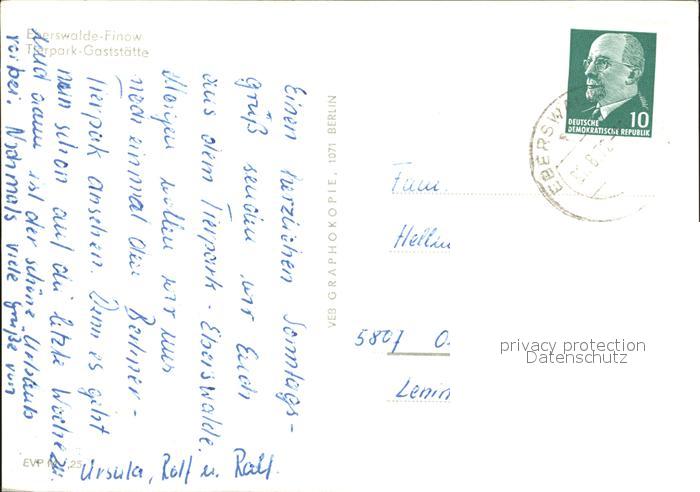 Eberswalde-Finow
Tierpark-Gaststätte
Einen herzlichen Sonntags-
gruß senden wir Euch
aus dem Tierpark-Eberswalde.
Morgen wollen wir uns
noch einmal den Berliner-
Tierpark ansehen. Denn es geht
nun schon auf die letzte Woche zu.
Und dann ist der schöne Urlaub
vorbei. Nochmals viele Grüße von
Ursula, Rolf u. Ralf.
EVP
VEB GRAPHOKOPIE, 1071 BERLIN
DEUTSCHE
DEMOKRATISCHE REPUBLIK
10
EBERSWA
Fam.
Hellm
5807 O
Lenin
privacy protection
Datenschutz